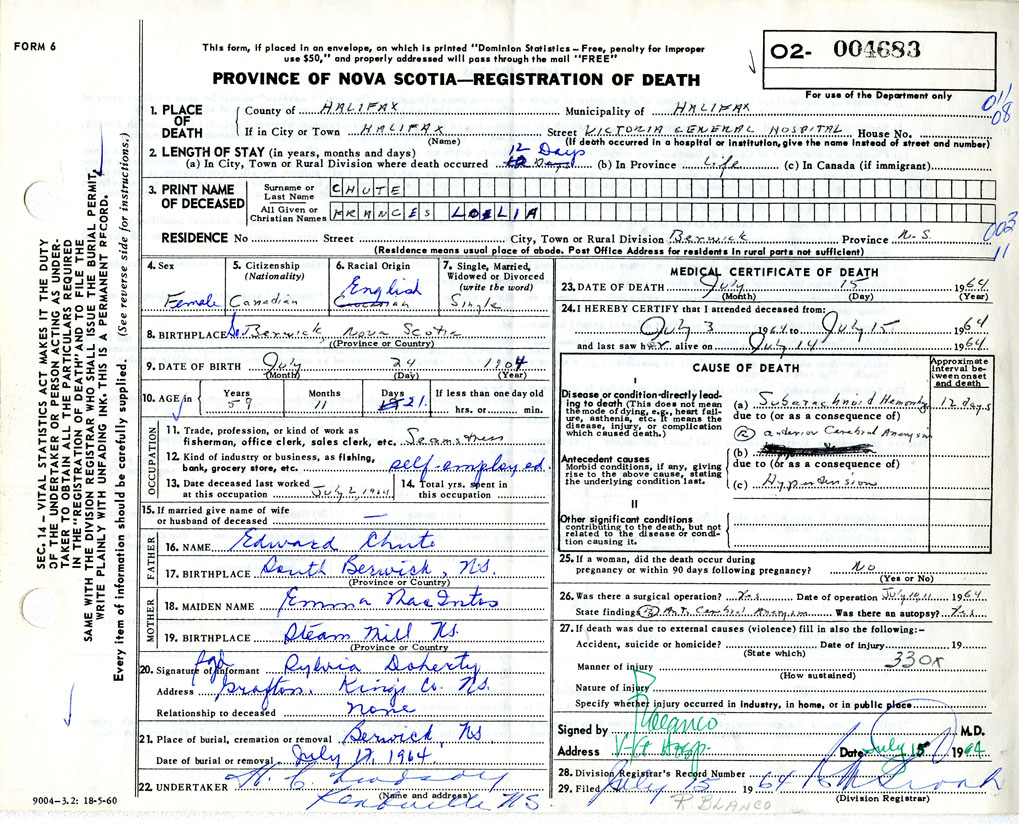 FORM 6
This form, if placed in an envelope, on which is printed "Dominion Statistics – Free, penalty for improper
use $50," and properly addressed will pass through the mail "FREE"
PROVINCE OF NOVA SCOTIA—REGISTRATION OF DEATH
O2- 004683
For use of the Department only
011
08
SEC. 14 – VITAL STATISTICS ACT MAKES IT THE DUTY
OF THE UNDERTAKER OR PERSON ACTING AS UNDER-
TAKER TO OBTAIN ALL THE PARTICULARS REQUIRED
IN THE "REGISTRATION OF DEATH" AND TO FILE THE
SAME WITH THE DIVISION REGISTRAR WHO SHALL ISSUE THE BURIAL PERMIT.
WRITE PLAINLY WITH UNFADING INK. THIS IS A PERMANENT RECORD.
Every item of information should be carefully supplied. (See reverse side for instructions.)
1. PLACE OF DEATH
County of HALIFAX Municipality of HALIFAX
If in City or Town HALIFAX Street VICTORIA GENERAL HOSPITAL House No.
(Name) (If death occurred in a hospital or institution, give the name instead of street and number)
2. LENGTH OF STAY (in years, months and days) 12 Days
(a) In City, Town or Rural Division where death occurred 12 Days (b) In Province Life (c) In Canada (if immigrant)
3. PRINT NAME OF DECEASED
Surname or Last Name CHUTE
All Given or Christian Names FRANCES LOELIA
003
11
RESIDENCE No Street City, Town or Rural Division Berwick Province N.S.
(Residence means usual place of abode. Post Office Address for residents in rural parts not sufficient)
4. Sex Female
5. Citizenship (Nationality) Canadian
6. Racial Origin English
7. Single, Married, Widowed or Divorced (write the word) Single
8. BIRTHPLACE So Berwick, Nova Scotia
(Province or Country)
9. DATE OF BIRTH July 24 1904
(Month) (Day) (Year)
10. AGE in Years 59 Months 11 Days 21 If less than one day old hrs. or min.
OCCUPATION
11. Trade, profession, or kind of work as
fisherman, office clerk, sales clerk, etc. Seamstress
12. Kind of industry or business, as fishing,
bank, grocery store, etc. self-employed.
13. Date deceased last worked
at this occupation July 2, 1964
14. Total yrs. spent in
this occupation
15. If married give name of wife
or husband of deceased —
FATHER
16. NAME Edward Chute
17. BIRTHPLACE South Berwick, NS.
(Province or Country)
MOTHER
18. MAIDEN NAME Emma MacIntos
19. BIRTHPLACE Steam Mill NS.
(Province or Country)
20. Signature of Informant Sylvia Doherty
Address Grafton, Kings Co. NS.
Relationship to deceased None
21. Place of burial, cremation or removal Berwick, NS
Date of burial or removal July 17, 1964
22. UNDERTAKER
(Name and address)
Kentville NS.
9004–3.2: 18-5-60
MEDICAL CERTIFICATE OF DEATH
23. DATE OF DEATH July 15 1964
(Month) (Day) (Year)
24. I HEREBY CERTIFY that I attended deceased from:
July 3 1964 to July 15 1964
and last saw her alive on July 14 1964
CAUSE OF DEATH
Approximate interval between onset and death
I
Disease or condition directly leading to death (This does not mean the mode of dying, e.g., heart failure, asthenia, etc. It means the disease, injury, or complication which caused death.)
(a) Subarachnoid Hemorrhage 12 days
due to (or as a consequence of)
(R) anterior Cerebral Aneurysm
(b)
Antecedent causes
Morbid conditions, if any, giving rise to the above cause, stating the underlying condition last.
due to (or as a consequence of)
(c) Hypertension
II
Other significant conditions
contributing to the death, but not related to the disease or condition causing it.
25. If a woman, did the death occur during
pregnancy or within 90 days following pregnancy? No
(Yes or No)
26. Was there a surgical operation? Yes Date of operation July 10, 11 1964
State findings (R) Ant. Cerebral Aneurysm Was there an autopsy? Yes
27. If death was due to external causes (violence) fill in also the following:–
Accident, suicide or homicide? Date of injury 19
(State which)
330X
Manner of injury
(How sustained)
Nature of injury
Specify whether injury occurred in industry, in home, or in public place
Signed by R Blanco M.D.
Address V-G Hosp. Date July 15 1964
28. Division Registrar's Record Number
29. Filed July 15 1964
(Division Registrar)
R. BLANCO